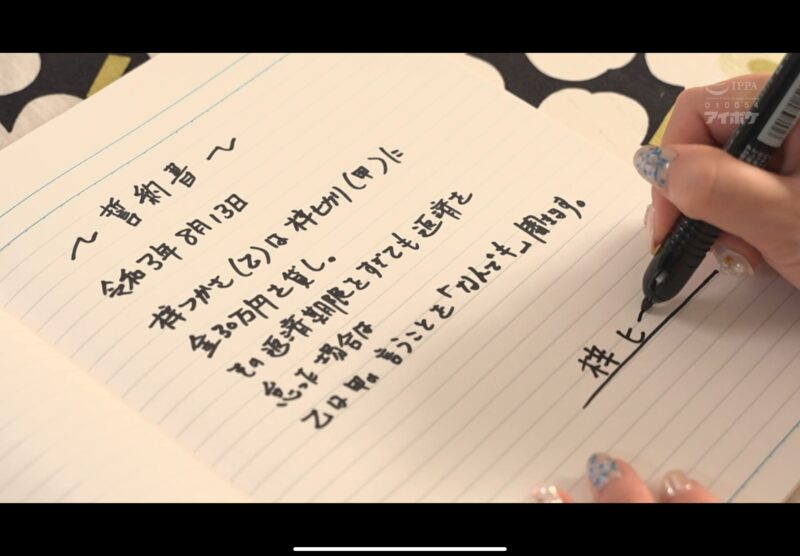 〜 誓約書 〜
令和3年8月13日
梓つかさ(乙)は梓ヒカリ(甲)に
金30万円を貸し。
その返済期限をすぎても返済を
怠った場合は
乙は甲の言うことを「なんでも」聞きます。
梓ヒ
IPPA
010054
アイポケ